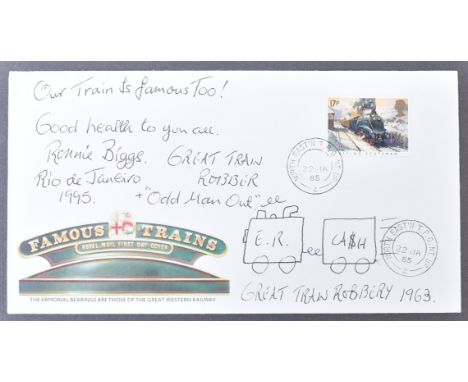 Our Train Is famous Too!
Good health to you all.
Ronnie Biggs. GREAT TRAIN
Rio de Janeiro ROBBER
1995. + "Odd Man Out" ee
17P
FLYING SCOTSMAN
NORTH EAST'N T.P.O. NT. UP.
22 JA
85
E.R. ee CA$H
NORTH EAST'N T.P.O. NT. UP.
22 JA
85
GREAT TRAIN ROBBERY 1963.
FAMOUS TRAINS
ROYAL MAIL FIRST DAY COVER
THE ARMORIAL BEARINGS ARE THOSE OF THE GREAT WESTERN RAILWAY